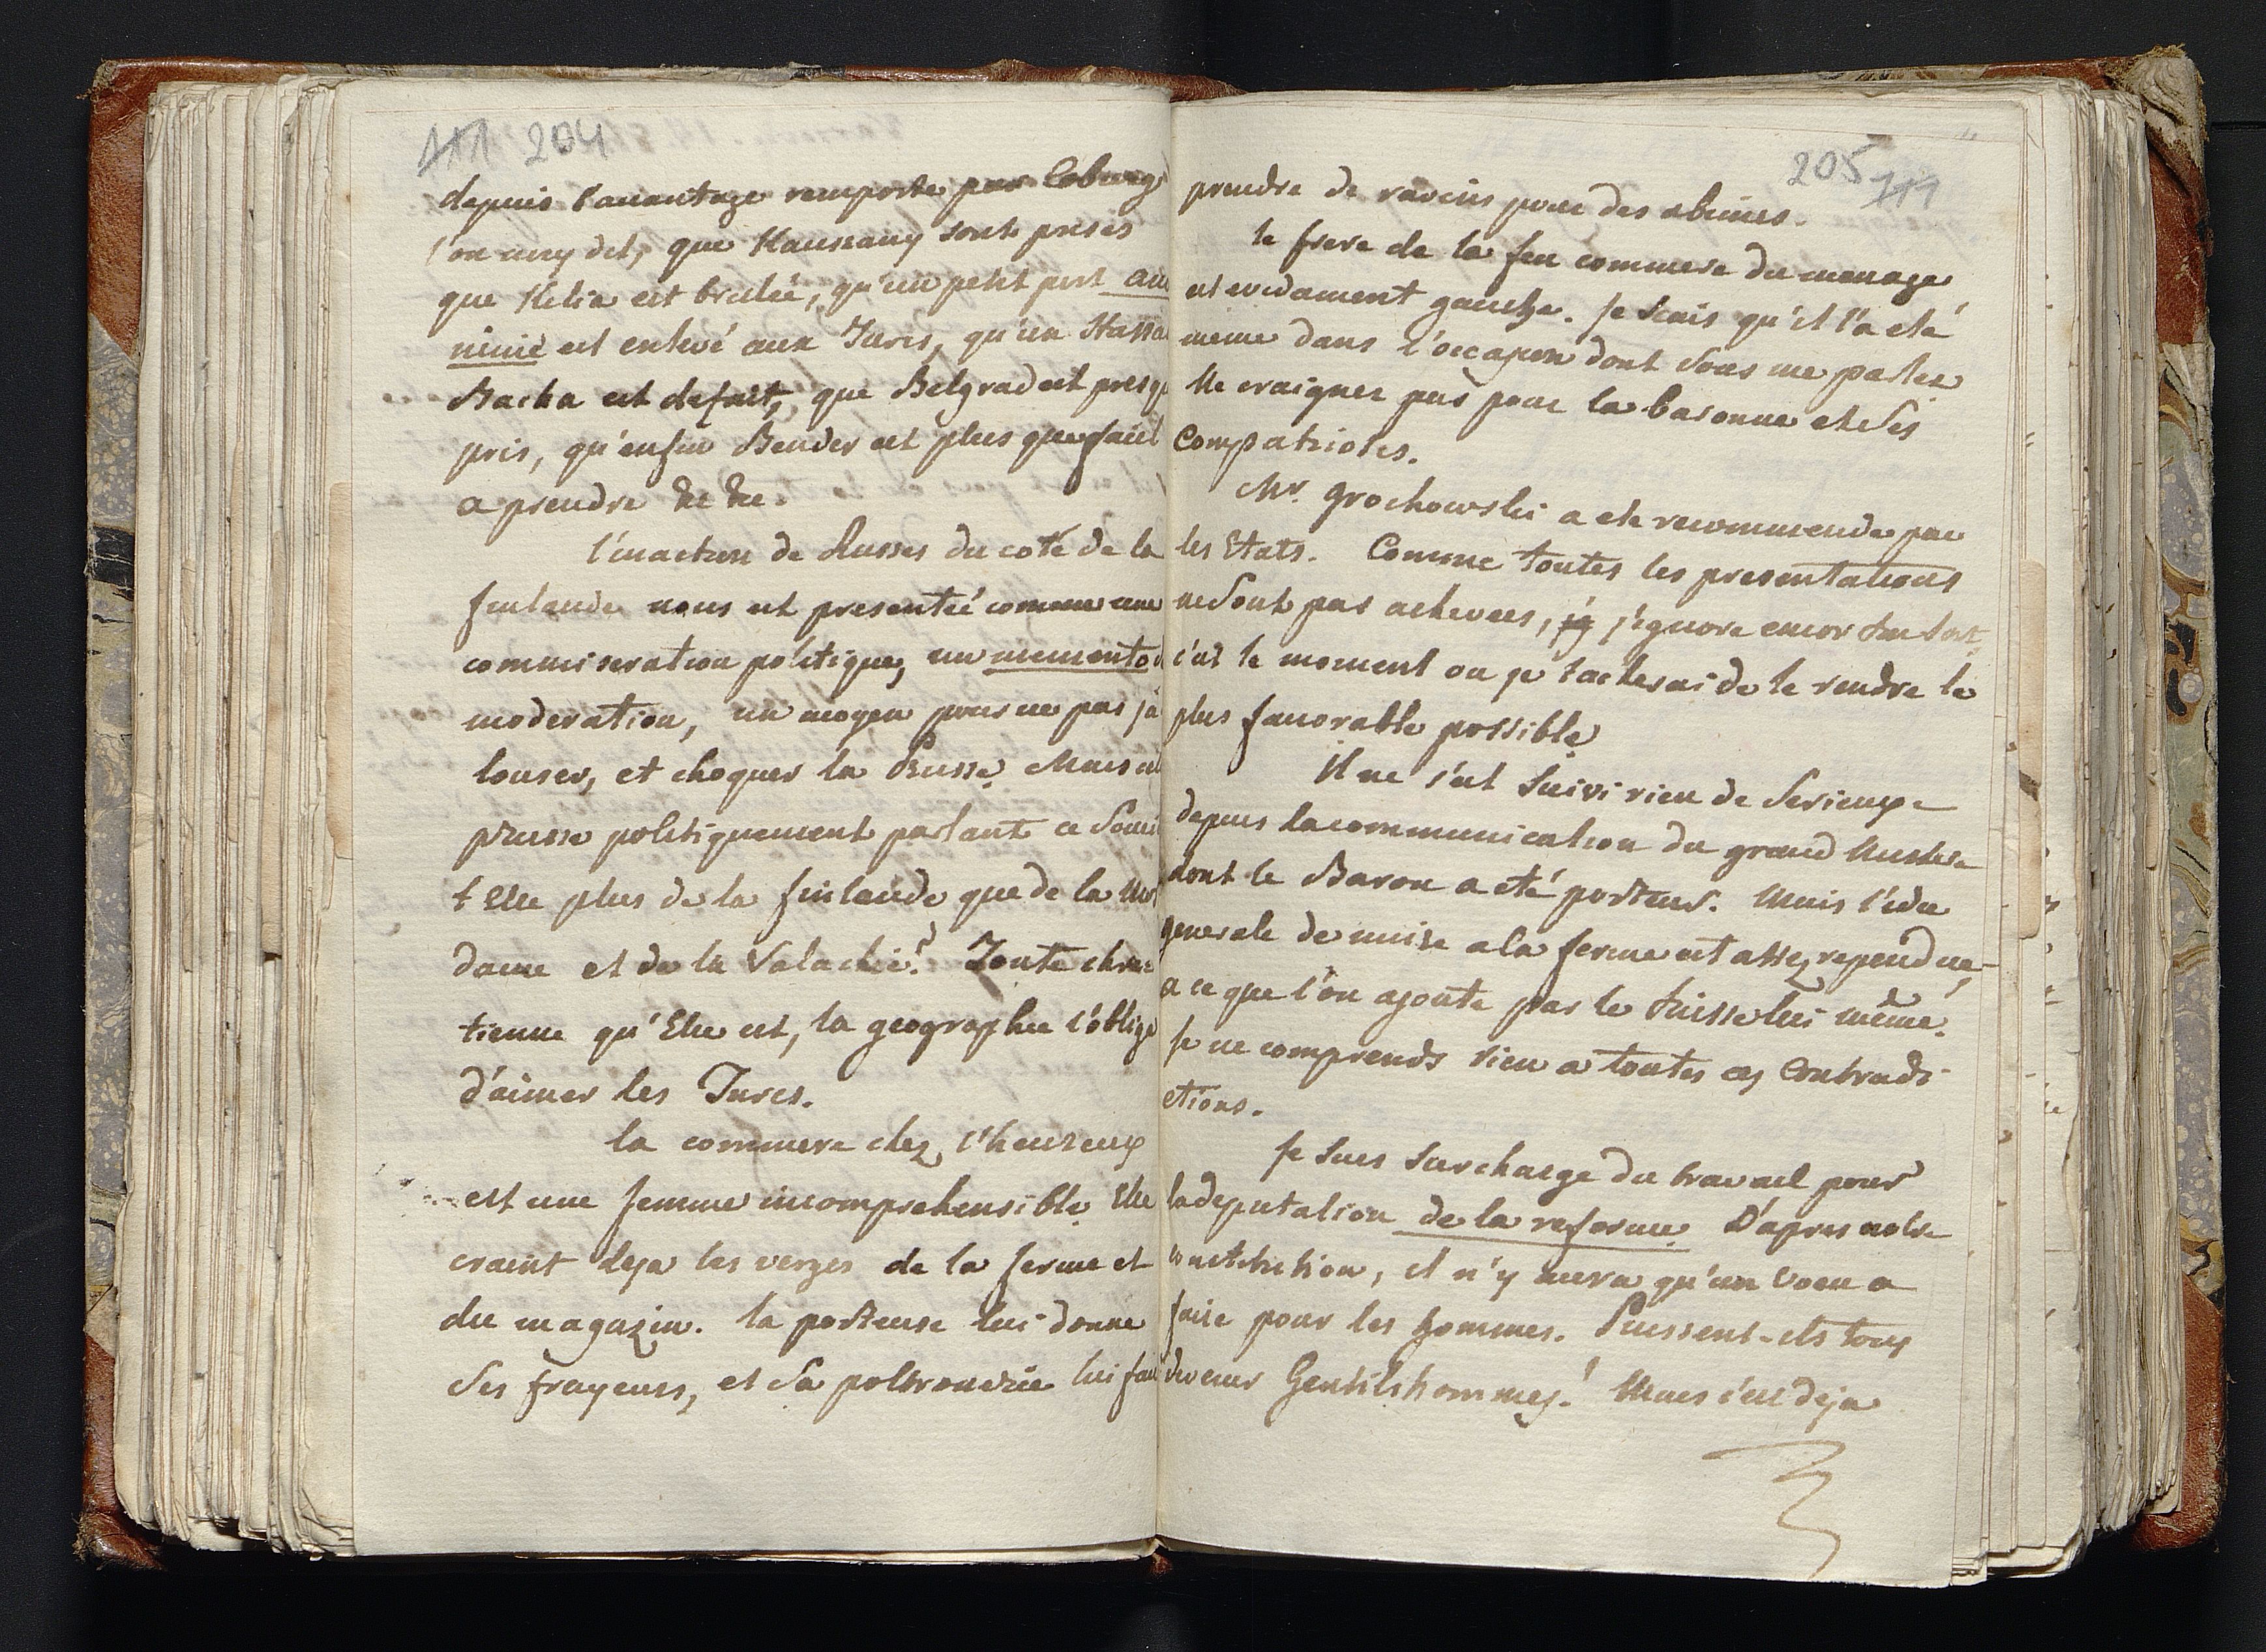 111 204
depuis l'avantage remporte par Cobourg
l'on ney det, que Kaussany sont prises
que Kelia est brulée, qu'un petit port
nimé est enlevé aux Turcs, qu'un Hassa
Bacha est defait, que Belgrad est presq
pris, qu'enfin Bender est plus que facil
a prendre &c &c.
l'inaction de Russes du coté de la
finlande nous est presenteé comme une
commiseration politique, un memento d
moderation, un moyen pour ne pas ja
louser, et choquer la Prusse. Mais
prusse politiquement parlant ce souci
t Elle plus de la finlande que de la Mol
davie et de la Valachie? Toute chre
tienne qu'Elle est, la geographie l'oblige
d'aimer les Turcs.
la commere chez l'heureux
est une femme incomprehensible. Elle
craint deja les verges de la ferme et
du magazin. la porteuse lui donne
ses frayeurs, et sa poltronerie lui fai
205 111
prendre de ravins pour des abimes.
le frere de la feu commere du menage
est evidament gauche. je scais qu'il l'a eté
meme dans l'occasion dont vous me parlez
Ne craignez pas pour la baronne et ses
Compatriotes.
Mr. Grochowski a ete recommende par
les Etats. Comme toutes les presentations
ne sont pas achevees, jg j'ignore encor son sort
c'est le moment ou je tacherai de le rendre le
plus favorable possible
Il ne s'est suivi rien de serieux
depuis la communication du grand Mustere
dont le Baron a eté porteur. Mais l'idée
generale de nuire a la ferme est assez rependue,
a ce que l'on ajoute par le Suisse lui même.
Je ne comprends rien a toutes ces Contradi
ctions.
Je suis surcharge du travail pour
la deputation de la reforme. D'apres notre
constitution, il n'y aura qu'un voeu a
faire pour les hommes. Puissent-ils tous
devenir Gentilshommes! Mais c'est deja